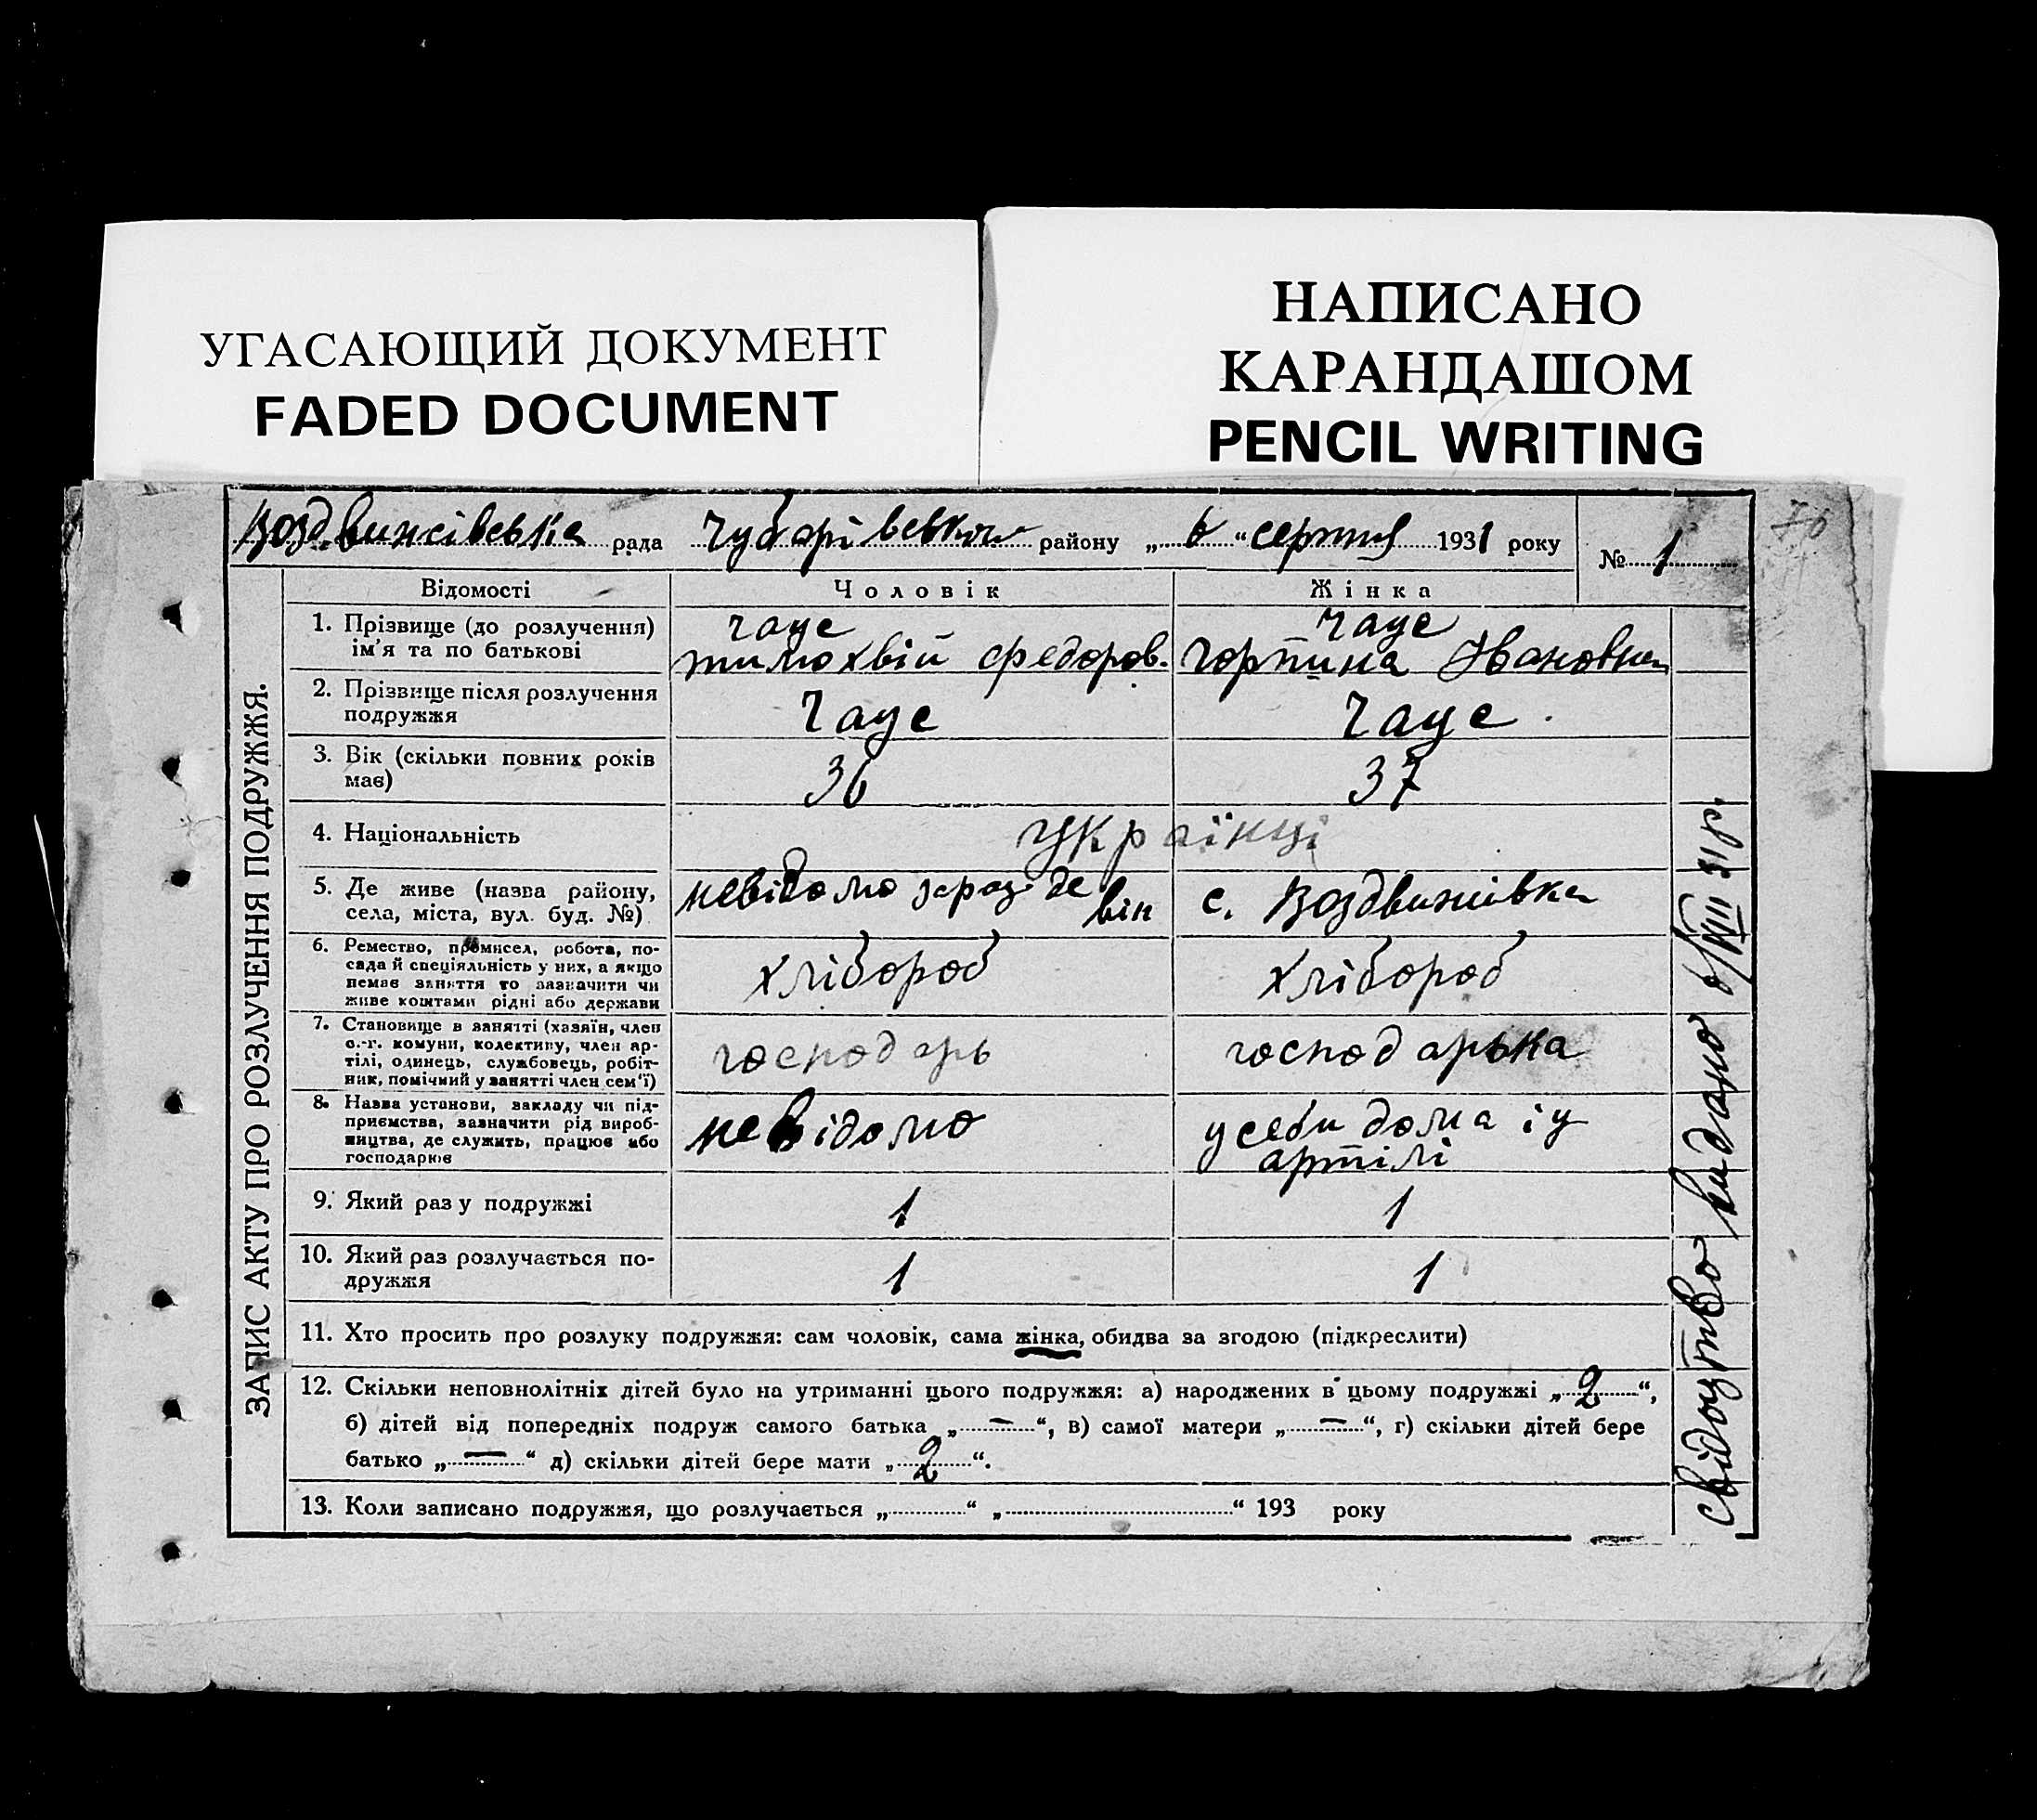 УГАСАЮЩИЙ ДОКУМЕНТ
FADED DOCUMENT
НАПИСАНО
КАРАНДАШОМ
PENCIL WRITING
76
Воздвижсівська рада Чубарівського району „ 6 “ серпня 1931 року № 1
ЗАПИС АКТУ ПРО РОЗЛУЧЕННЯ ПОДРУЖЖЯ.
Відомості Чоловік Жінка
1. Прізвище (до розлучення) ім'я та по батькові
Гаце
тимохвій федоров.
Гаце
горпина Ивановна
2. Прізвище після розлучення подружжя
Гаце
Гаце.
3. Вік (скільки повних років має)
36
37
4. Національність
Українці
5. Де живе (назва району, села, міста, вул. буд. №)
невідомо зараз де він
с. Воздвижівка
6. Ремество, промисел, робота, посада й спеціяльність у них, а якщо немає заняття то зазначити чи живе коштами рідні або держави
хлібороб
хлібороб
7. Становище в занятті (хазяїн, член с.-г. комуни, колективу, член артілі, одинець, службовець, робітник, помічний у занятті член сем'ї)
господарь
господарька
8. Назва установи, закладу чи підприємства, зазначити рід виробництва, де служить, працює або господарює
невідомо
у себи дома і у
артілі
9. Який раз у подружжі
1
1
10. Який раз розлучається подружжя
1
1
11. Хто просить про розлуку подружжя: сам чоловік, сама жінка, обидва за згодою (підкреслити)
12. Скільки неповнолітніх дітей було на утриманні цього подружжя: а) народжених в цьому подружжі „ 2 “,
б) дітей від попередніх подруж самого батька „ — “, в) самої матери „ — “, г) скільки дітей бере
батько „ — “ д) скільки дітей бере мати „ 2 “.
13. Коли записано подружжя, що розлучається „ “ „ “ 193 року
свідоцтво видано 6/VIII 31 р.